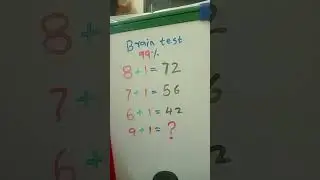 Brain test
99%
8+1=72
7+1=56
6+1=42
9+1=?